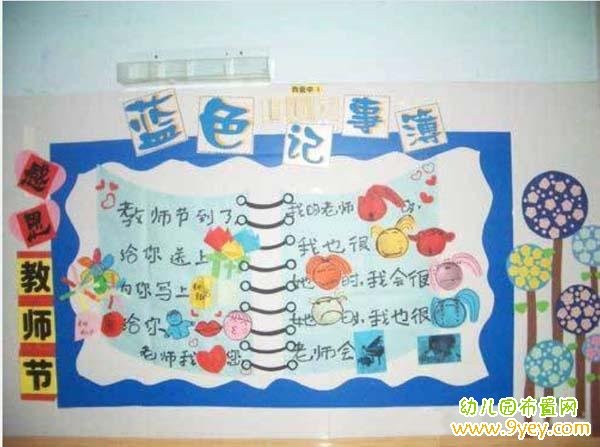 蓝色记事簿
感恩
教师节
教师节到了
给你送上
为你写上
给你
老师我 您
我的老师
我也很
她 时,我会很
她 时,我也很
老师会
幼儿园布置网
www.9yey.com